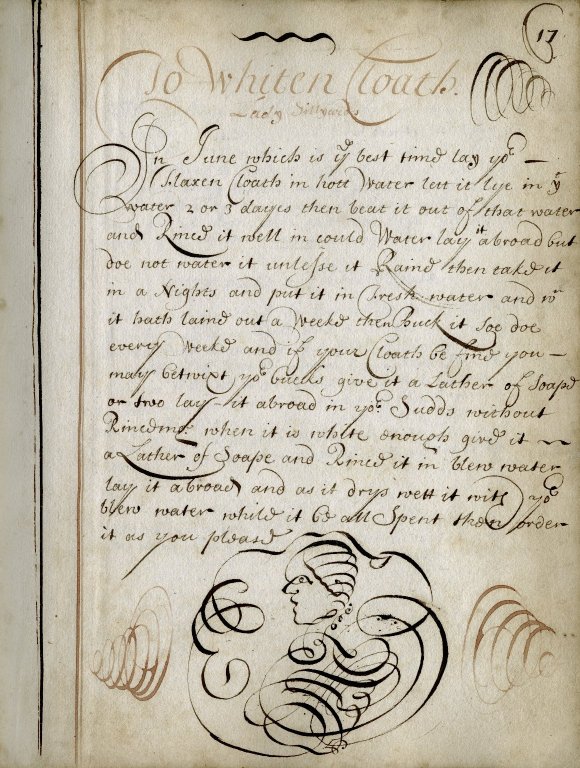 17
To Whiten Cloath.
Lady
In June which is yᵉ best time lay yoʳ —
fflaxen Cloath in hott Water lett it lye in yᵉ
Water 2 or 3 dayes then beat it out of that water
and Rince it well in could Water lay it abroad but
doe not water it unlesse it Raine then take it
in a Nights and put it in Fresh water and wⁿ
it hath laine out a Weeke then Buck it soe doe
every Weeke and if your Cloath be fine you —
may betwixt yoʳ bucks give it a Lather of Soape
or two lay it abroad in yoʳ Sudds without
Rinceing when it is white enough give it ~~
a Lather of Soape and Rince it in blew water
lay it abroad and as it drys wett it with yoʳ
blew water while it be all Spent then order
it as you please